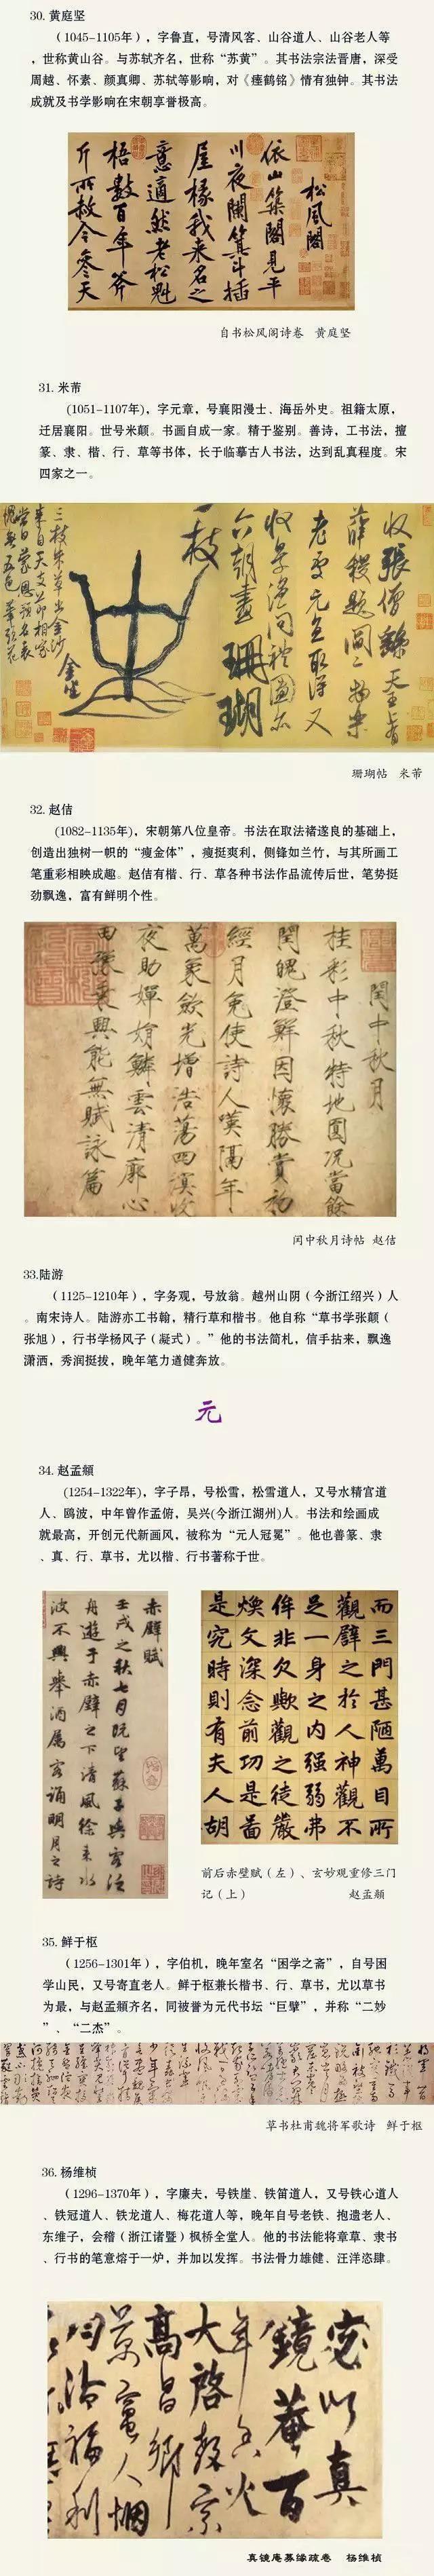 30. 黄庭坚
（1045-1105年），字鲁直，号清风客、山谷道人、山谷老人等
，世称黄山谷。与苏轼齐名，世称“苏黄”。其书法宗法晋唐，深受
周越、怀素、颜真卿、苏轼等影响，对《瘗鹤铭》情有独钟。其书法
成就及书学影响在宋朝享誉极高。
松風閣
依山築閣見平
川夜闌箕斗插
屋椽我来名之
意適然老松魁
梧數百年斧
斤所赦今參天
自书松风阁诗卷 黄庭坚
31. 米芾
(1051-1107年)，字元章，号襄阳漫士、海岳外史。祖籍太原，
迁居襄阳。世号米颠。书画自成一家。精于鉴别。善诗，工书法，擅
篆、隶、楷、行、草等书体，长于临摹古人书法，达到乱真程度。宋
四家之一。
收張僧繇天王上有
薛稷題閻二物樂
老處元直取得又
收景溫問禮圖亦
六朝畫珊瑚
一枝
金坐
三枝朱草出金沙
来自天支节相家
當日蒙恩預名表
愧無五色筆頭花
珊瑚帖 米芾
32. 赵佶
(1082-1135年)，宋朝第八位皇帝。书法在取法褚遂良的基础上，
创造出独树一帜的“瘦金体”，瘦挺爽利，侧锋如兰竹，与其所画工
笔重彩相映成趣。赵佶有楷、行、草各种书法作品流传后世，笔势挺
劲飘逸，富有鲜明个性。
閏中秋月
桂彩中秋特地圓況當餘
閏魄澄鮮因懷勝賞初
經月免使詩人嘆隔年
萬象歛光增浩蕩四溟收
夜助嬋娟鱗雲清廓心
田豫乘興能無賦詠篇
闰中秋月诗帖 赵佶
33.陆游
（1125-1210年），字务观，号放翁。越州山阴（今浙江绍兴）人
。南宋诗人。陆游亦工书翰，精行草和楷书。他自称“草书学张颠（
张旭），行书学杨风子（凝式）。”他的书法简札，信手拈来，飘逸
潇洒，秀润挺拔，晚年笔力遒健奔放。
元
34. 赵孟頫
(1254-1322年)，字子昂，号松雪，松雪道人，又号水精宫道
人、鸥波，中年曾作孟俯，吴兴(今浙江湖州)人。书法和绘画成
就最高，开创元代新画风，被称为“元人冠冕”。他也善篆、隶
、真、行、草书，尤以楷、行书著称于世。
赤壁賦
壬戌之秋七月既望蘇子與客泛
舟遊于赤壁之下清風徐来水
波不興舉酒属客誦明月之詩
而三門甚陋萬目所
觀壁之於人神觀不
足一身之内强弱弗
侔非欠歟觀之徒嚴
煥文深念前功是啚
是究時則有夫人胡
前后赤壁赋（左）、玄妙观重修三门
记（上） 赵孟頫
35. 鲜于枢
（1256-1301年），字伯机，晚年室名“困学之斋”，自号困
学山民，又号寄直老人。鲜于枢兼长楷书、行、草书，尤以草书
为最，与赵孟頫齐名，同被誉为元代书坛“巨擘”，并称“二妙
”、“二杰”。
草书杜甫魏将军歌诗 鲜于枢
36. 杨维桢
（1296-1370年），字廉夫，号铁崖、铁笛道人，又号铁心道人
、铁冠道人、铁龙道人、梅花道人等，晚年自号老铁、抱遗老人、
东维子，会稽（浙江诸暨）枫桥全堂人。他的书法能将章草、隶书
、行书的笔意熔于一炉，并加以发挥。书法骨力雄健、汪洋恣肆。
宓以真
鏡菴百
年香火
大啓教宗
高昌鄉
真镜庵募缘疏卷 杨维桢